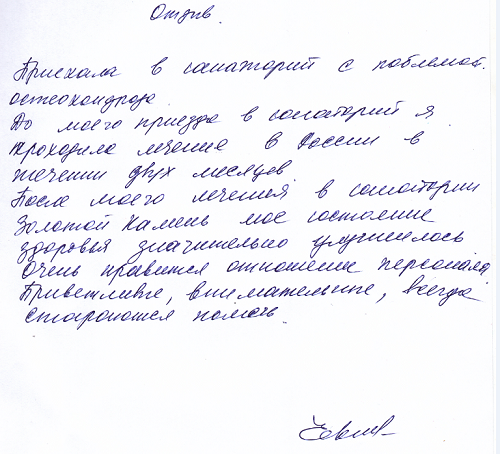 Отзыв.
Приехала в санаторий с проблемой
остеохондроза
До моего приезда в санаторий я
проходила лечение в России в
течении двух месяцев
После моего лечения в санатории
Золотой Камень мое состояние
здоровья значительно улучшилось
Очень нравится отношение персонала
Приветливые, внимательные, всегда
стараются помочь